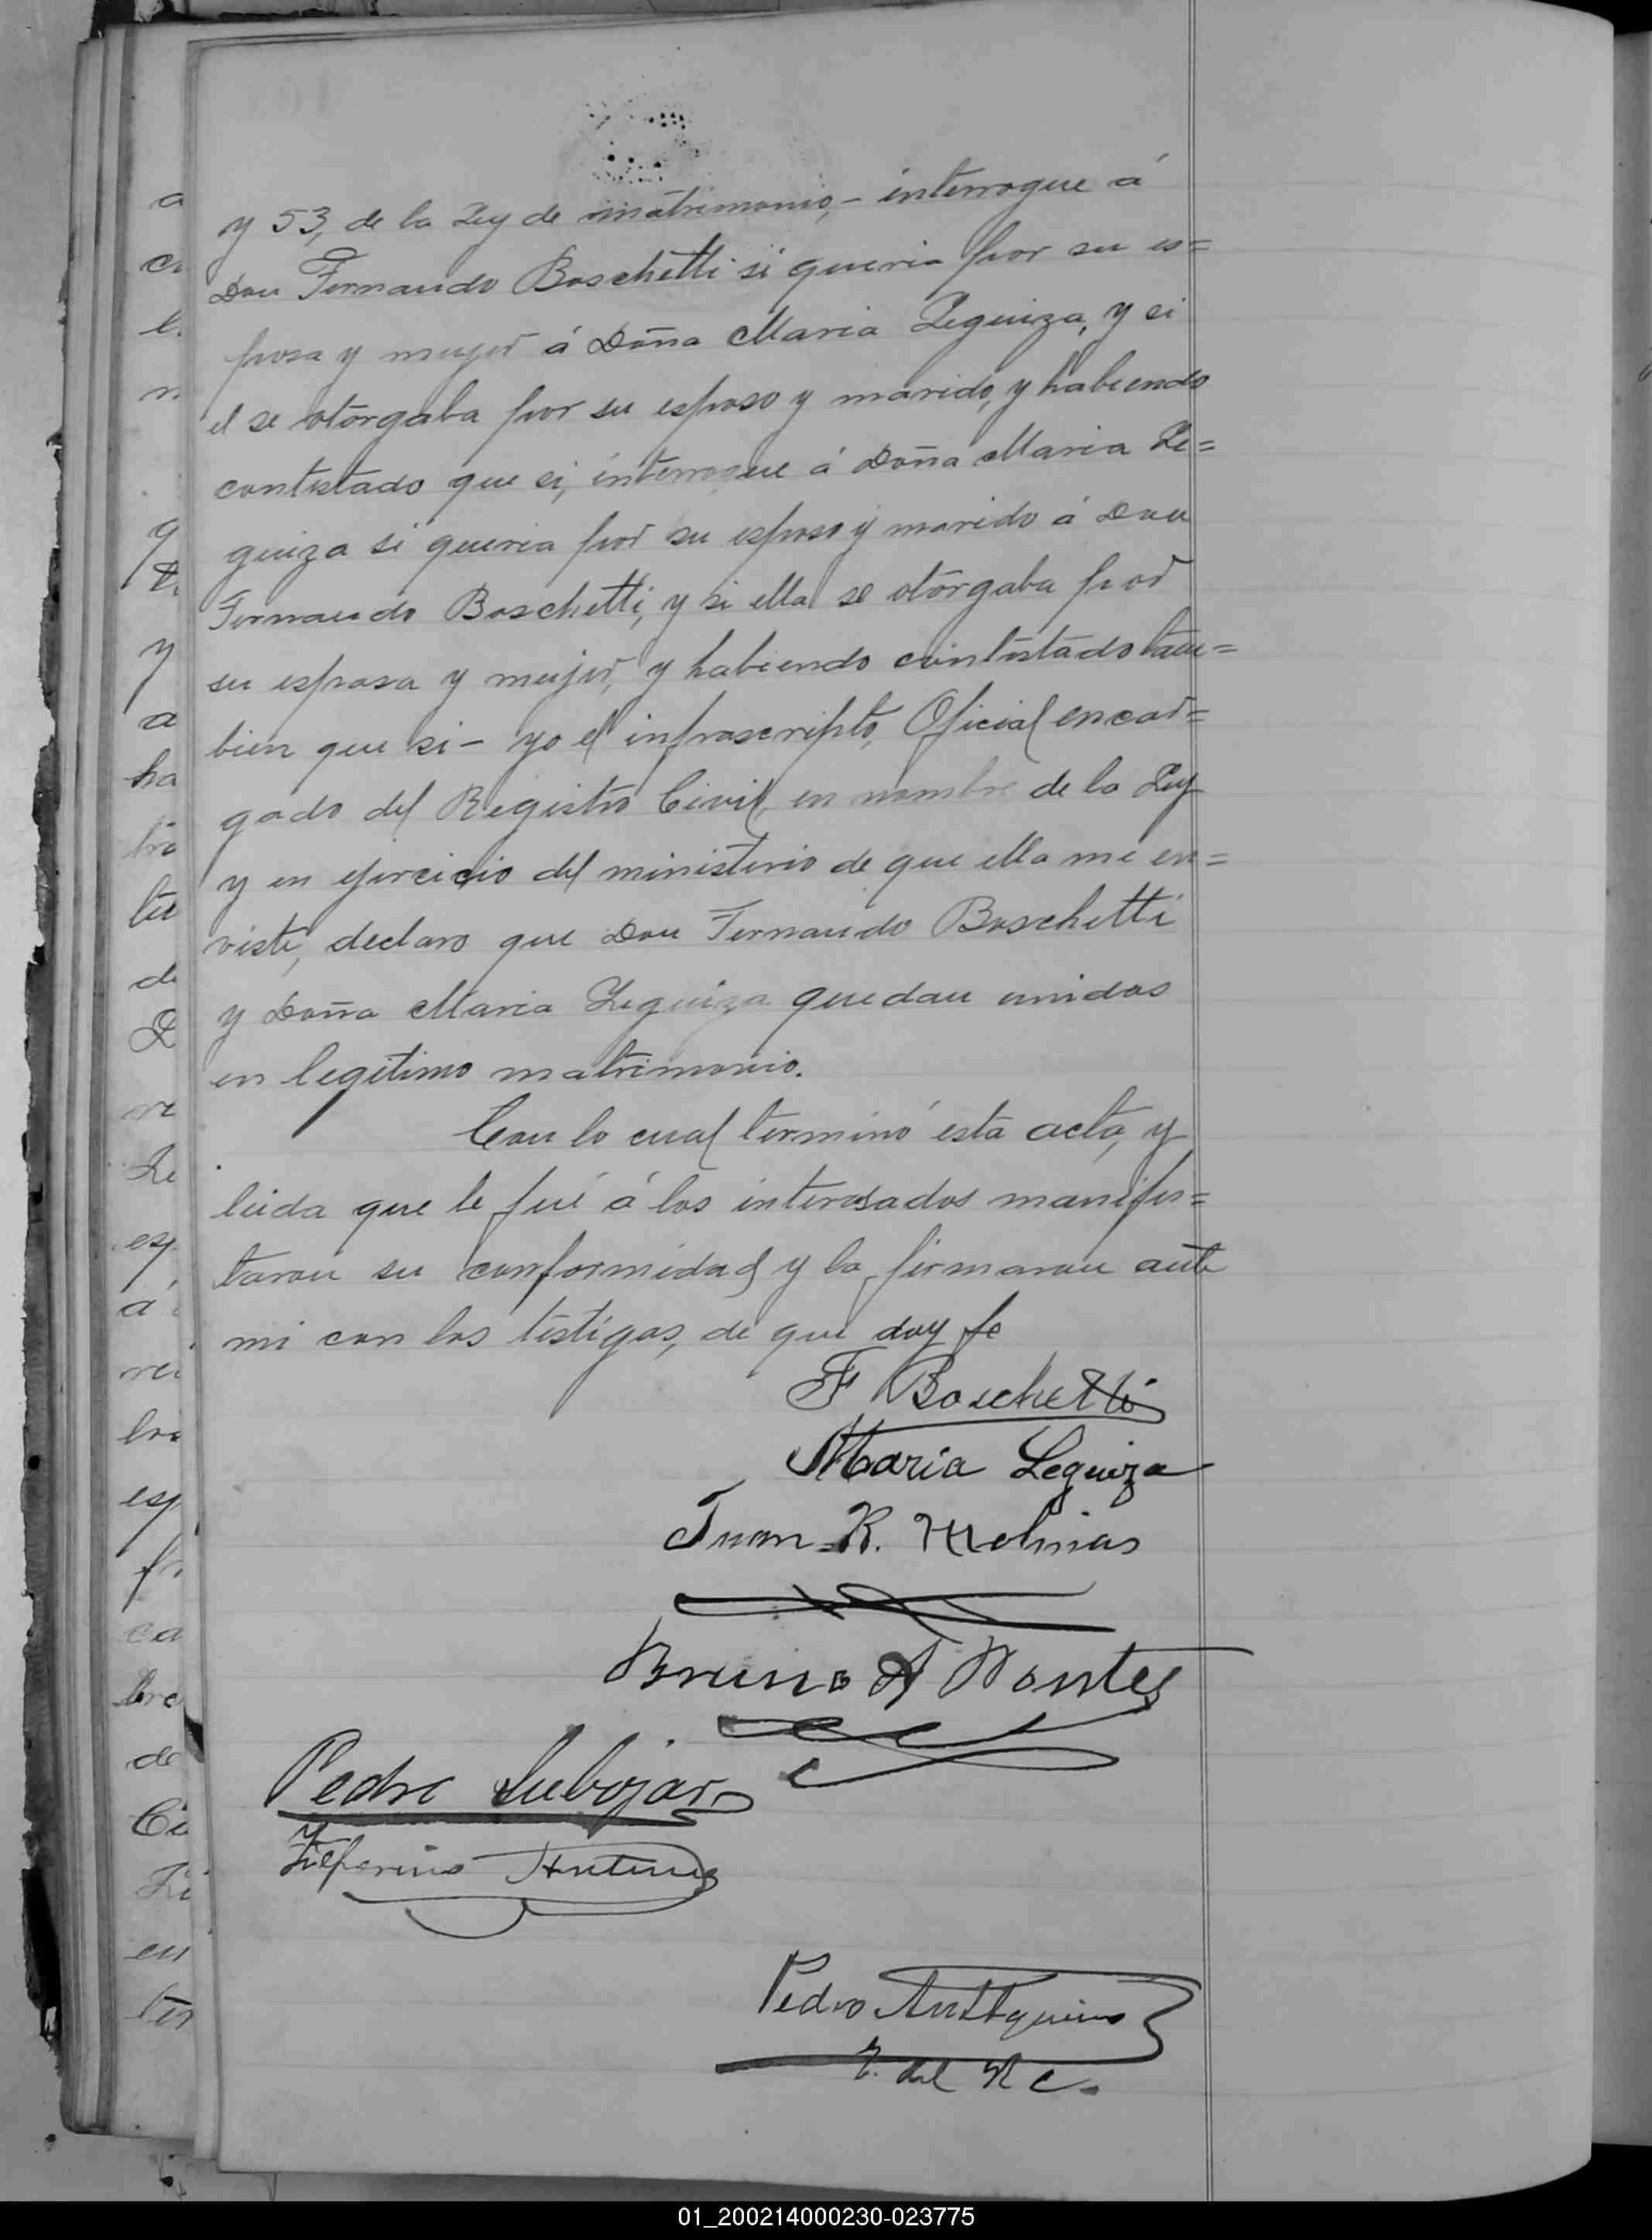 y 53, de la Ley de matrimonio, - interrogue á
Don Fernando Boschetti si queria por su es=
posa y mujer á Doña Maria Leguiza, y si
el se otorgaba por su esposo y marido, y habiendo
contestado que si, interrogue á Doña Maria Le=
guiza si queria por su esposo y marido á Don
Fernando Boschetti, y si ella se otorgaba por
su esposa y mujer, y habiendo contestado tam=
bien que si - yo el infrascripto, Oficial encar=
gado del Registro Civil, en nombre de la Ley
y en ejercicio del ministerio de que ella me en=
viste, declaro que Don Fernando Boschetti
y Doña Maria Leguiza quedan unidos
en legitimo matrimonio.
Con lo cual terminó esta acta, y
leida que le fué á los interesados manifes=
taron su conformidad y la firmaron ante
mi con los testigos, de que doy fe
F Boschetti
Maria Leguiza
Juan R. Molinas
Bruno A Montes
Pedro
Pedro
E. del R C.
01_200214000230-023775